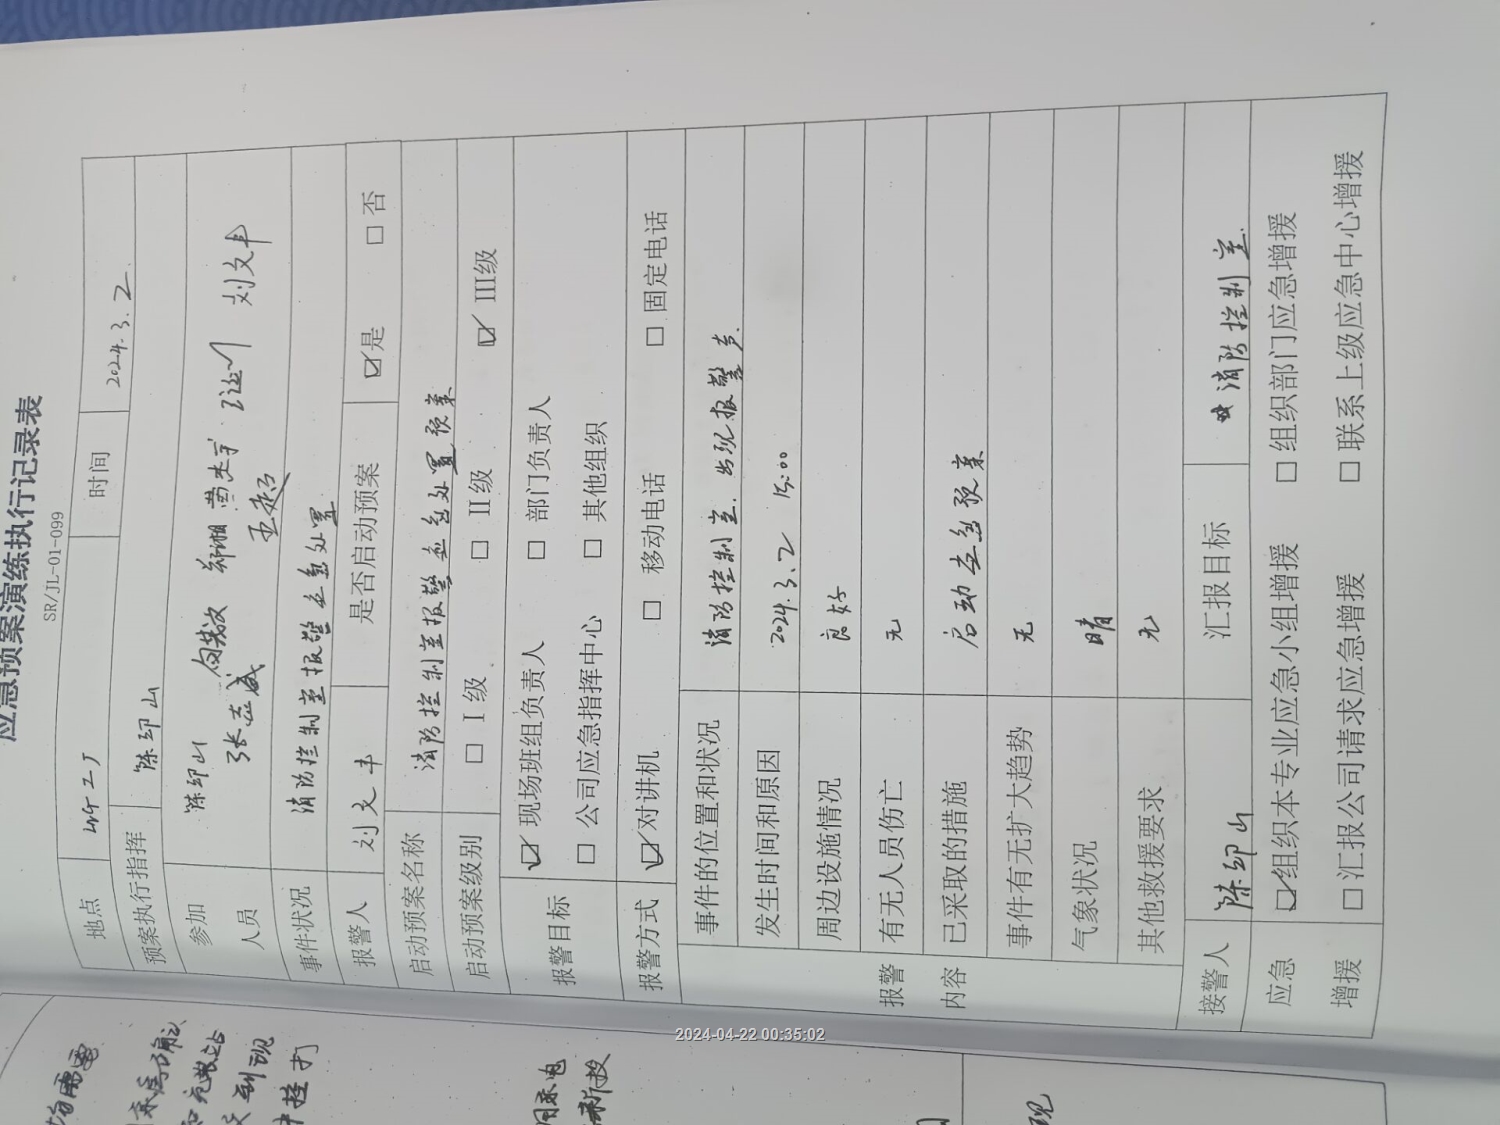 应急预案演练执行记录表
SR/JL-01-099
地点 时间 2024.3.2
预案执行指挥 陈印山
参加人员 陈印山 刘文丰
王超
事件状况 消防控制室报警应急处置
报警人 刘文丰 是否启动预案 ☑是 □否
启动预案名称 消防控制室报警应急处置预案
启动预案级别 □ I级 □ II级 ☑ III级
报警目标 ☑现场班组负责人 □ 部门负责人
□ 公司应急指挥中心 □ 其他组织
报警方式 ☑对讲机 □ 移动电话 □ 固定电话
报警内容
事件的位置和状况 消防控制室.出现报警声.
发生时间和原因 2024.3.2 15:00
周边设施情况 良好
有无人员伤亡 无
已采取的措施 启动应急预案
事件有无扩大趋势 无
气象状况 晴
其他救援要求 无
接警人 陈印山 汇报目标 消防控制室.
应急增援 ☑组织本专业应急小组增援 □ 组织部门应急增援
□ 汇报公司请求应急增援 □ 联系上级应急中心增援
2024-04-22 00:35:02